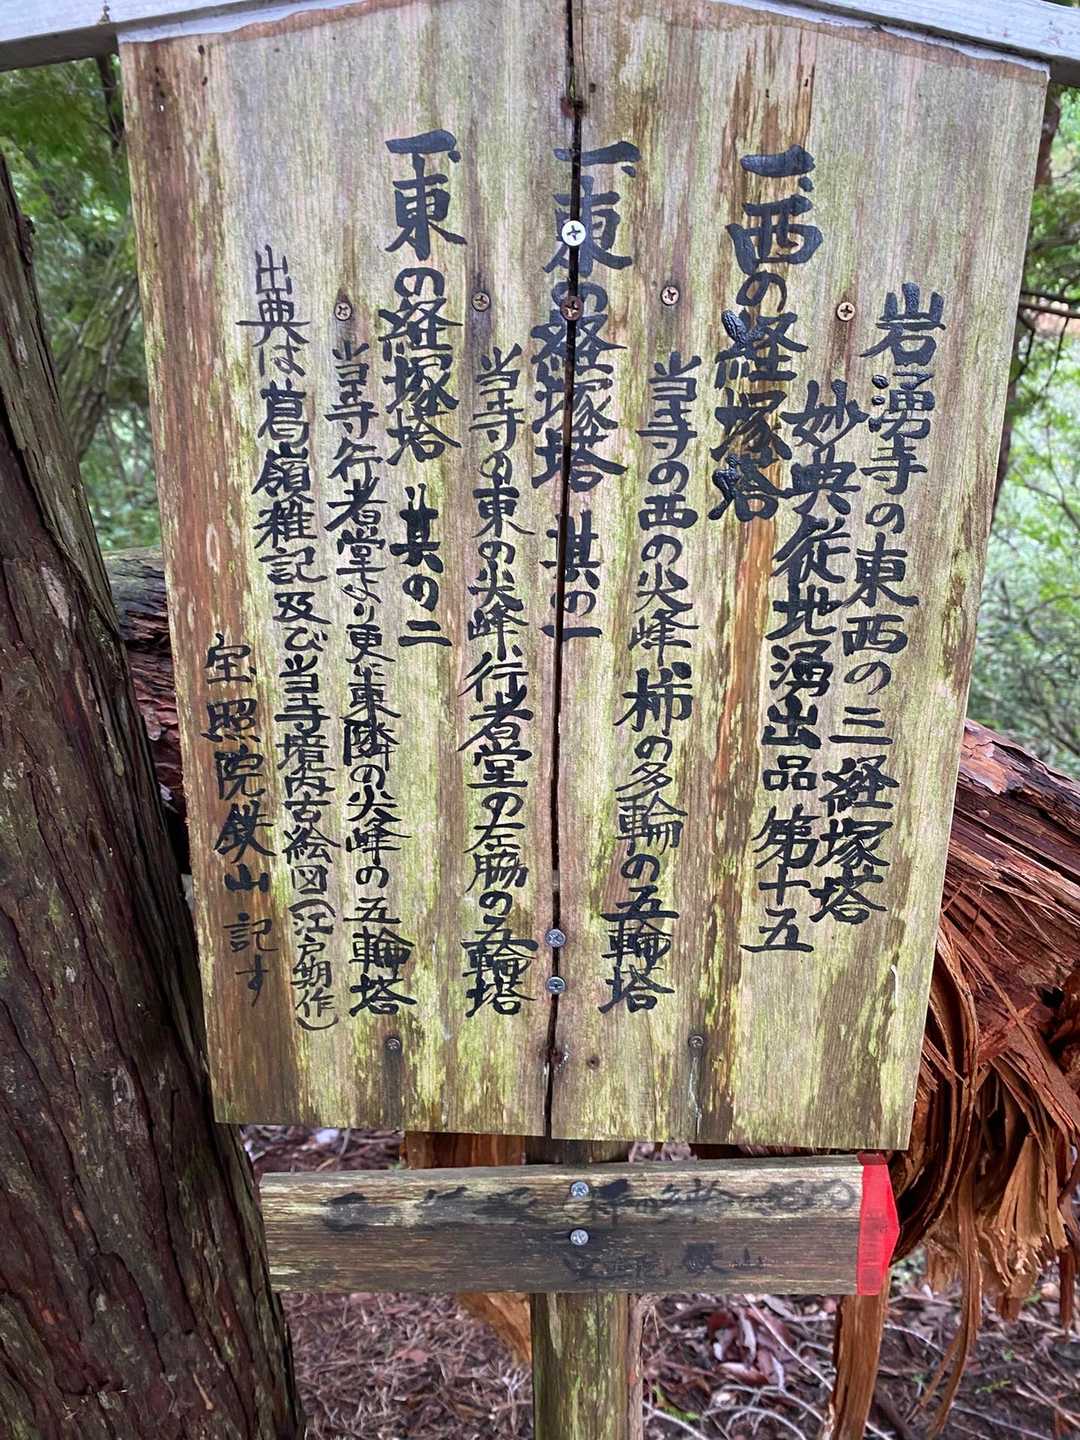 岩湧寺の東西の三経塚塔
妙典従地湧出品第十五
一、西の経塚塔
当寺の西の尖峰柿の多輪の五輪塔
一、東の経塚塔 其の一
当寺の東の尖峰、行者堂の左脇の五輪塔
一、東の経塚塔 其の二
当寺行者堂より更に東隣の尖峰の五輪塔
出典は葛嶺雑記及び当寺境内古絵図(江戸期作)
宝照院鉄山記す